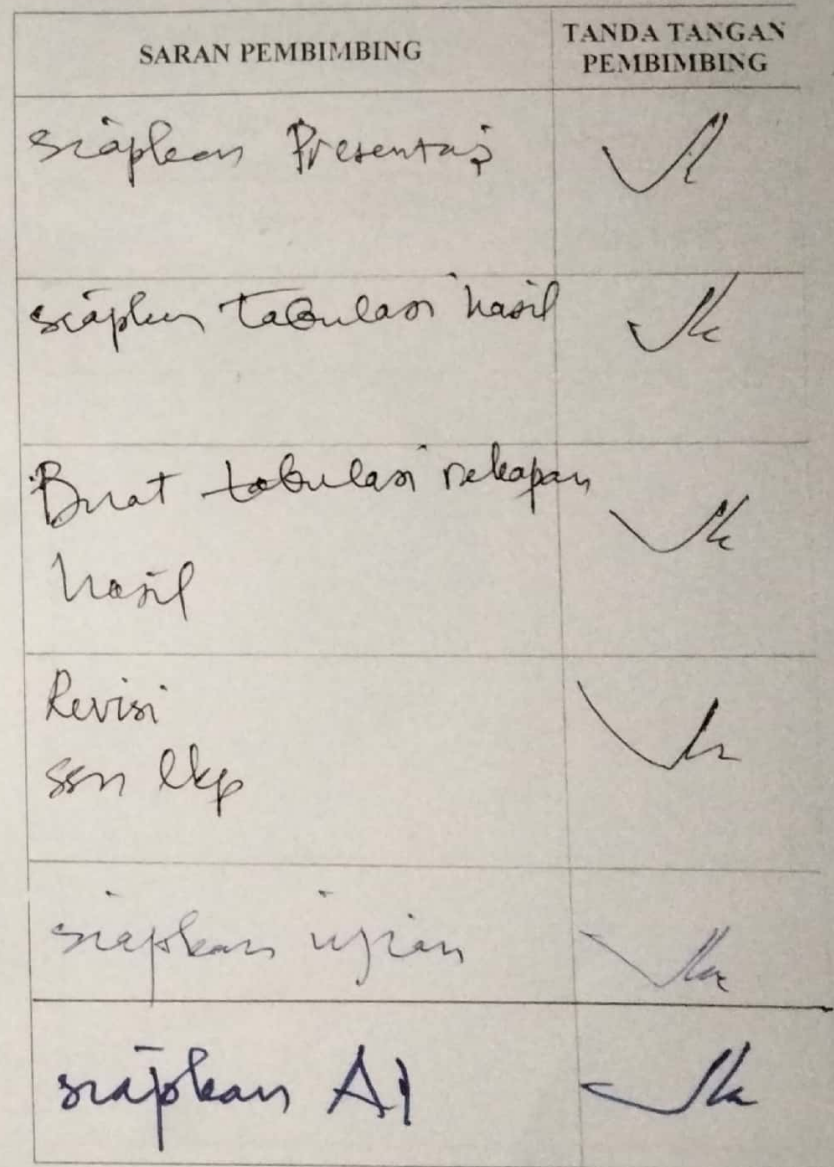 SARAN PEMBIMBING
TANDA TANGAN
PEMBIMBING
siapkan Presentasi
siapkan tabulasi hasil
Buat tabulasi rekapan
hasil
Revisi
ssn lkp
siapkan ujian
siapkan